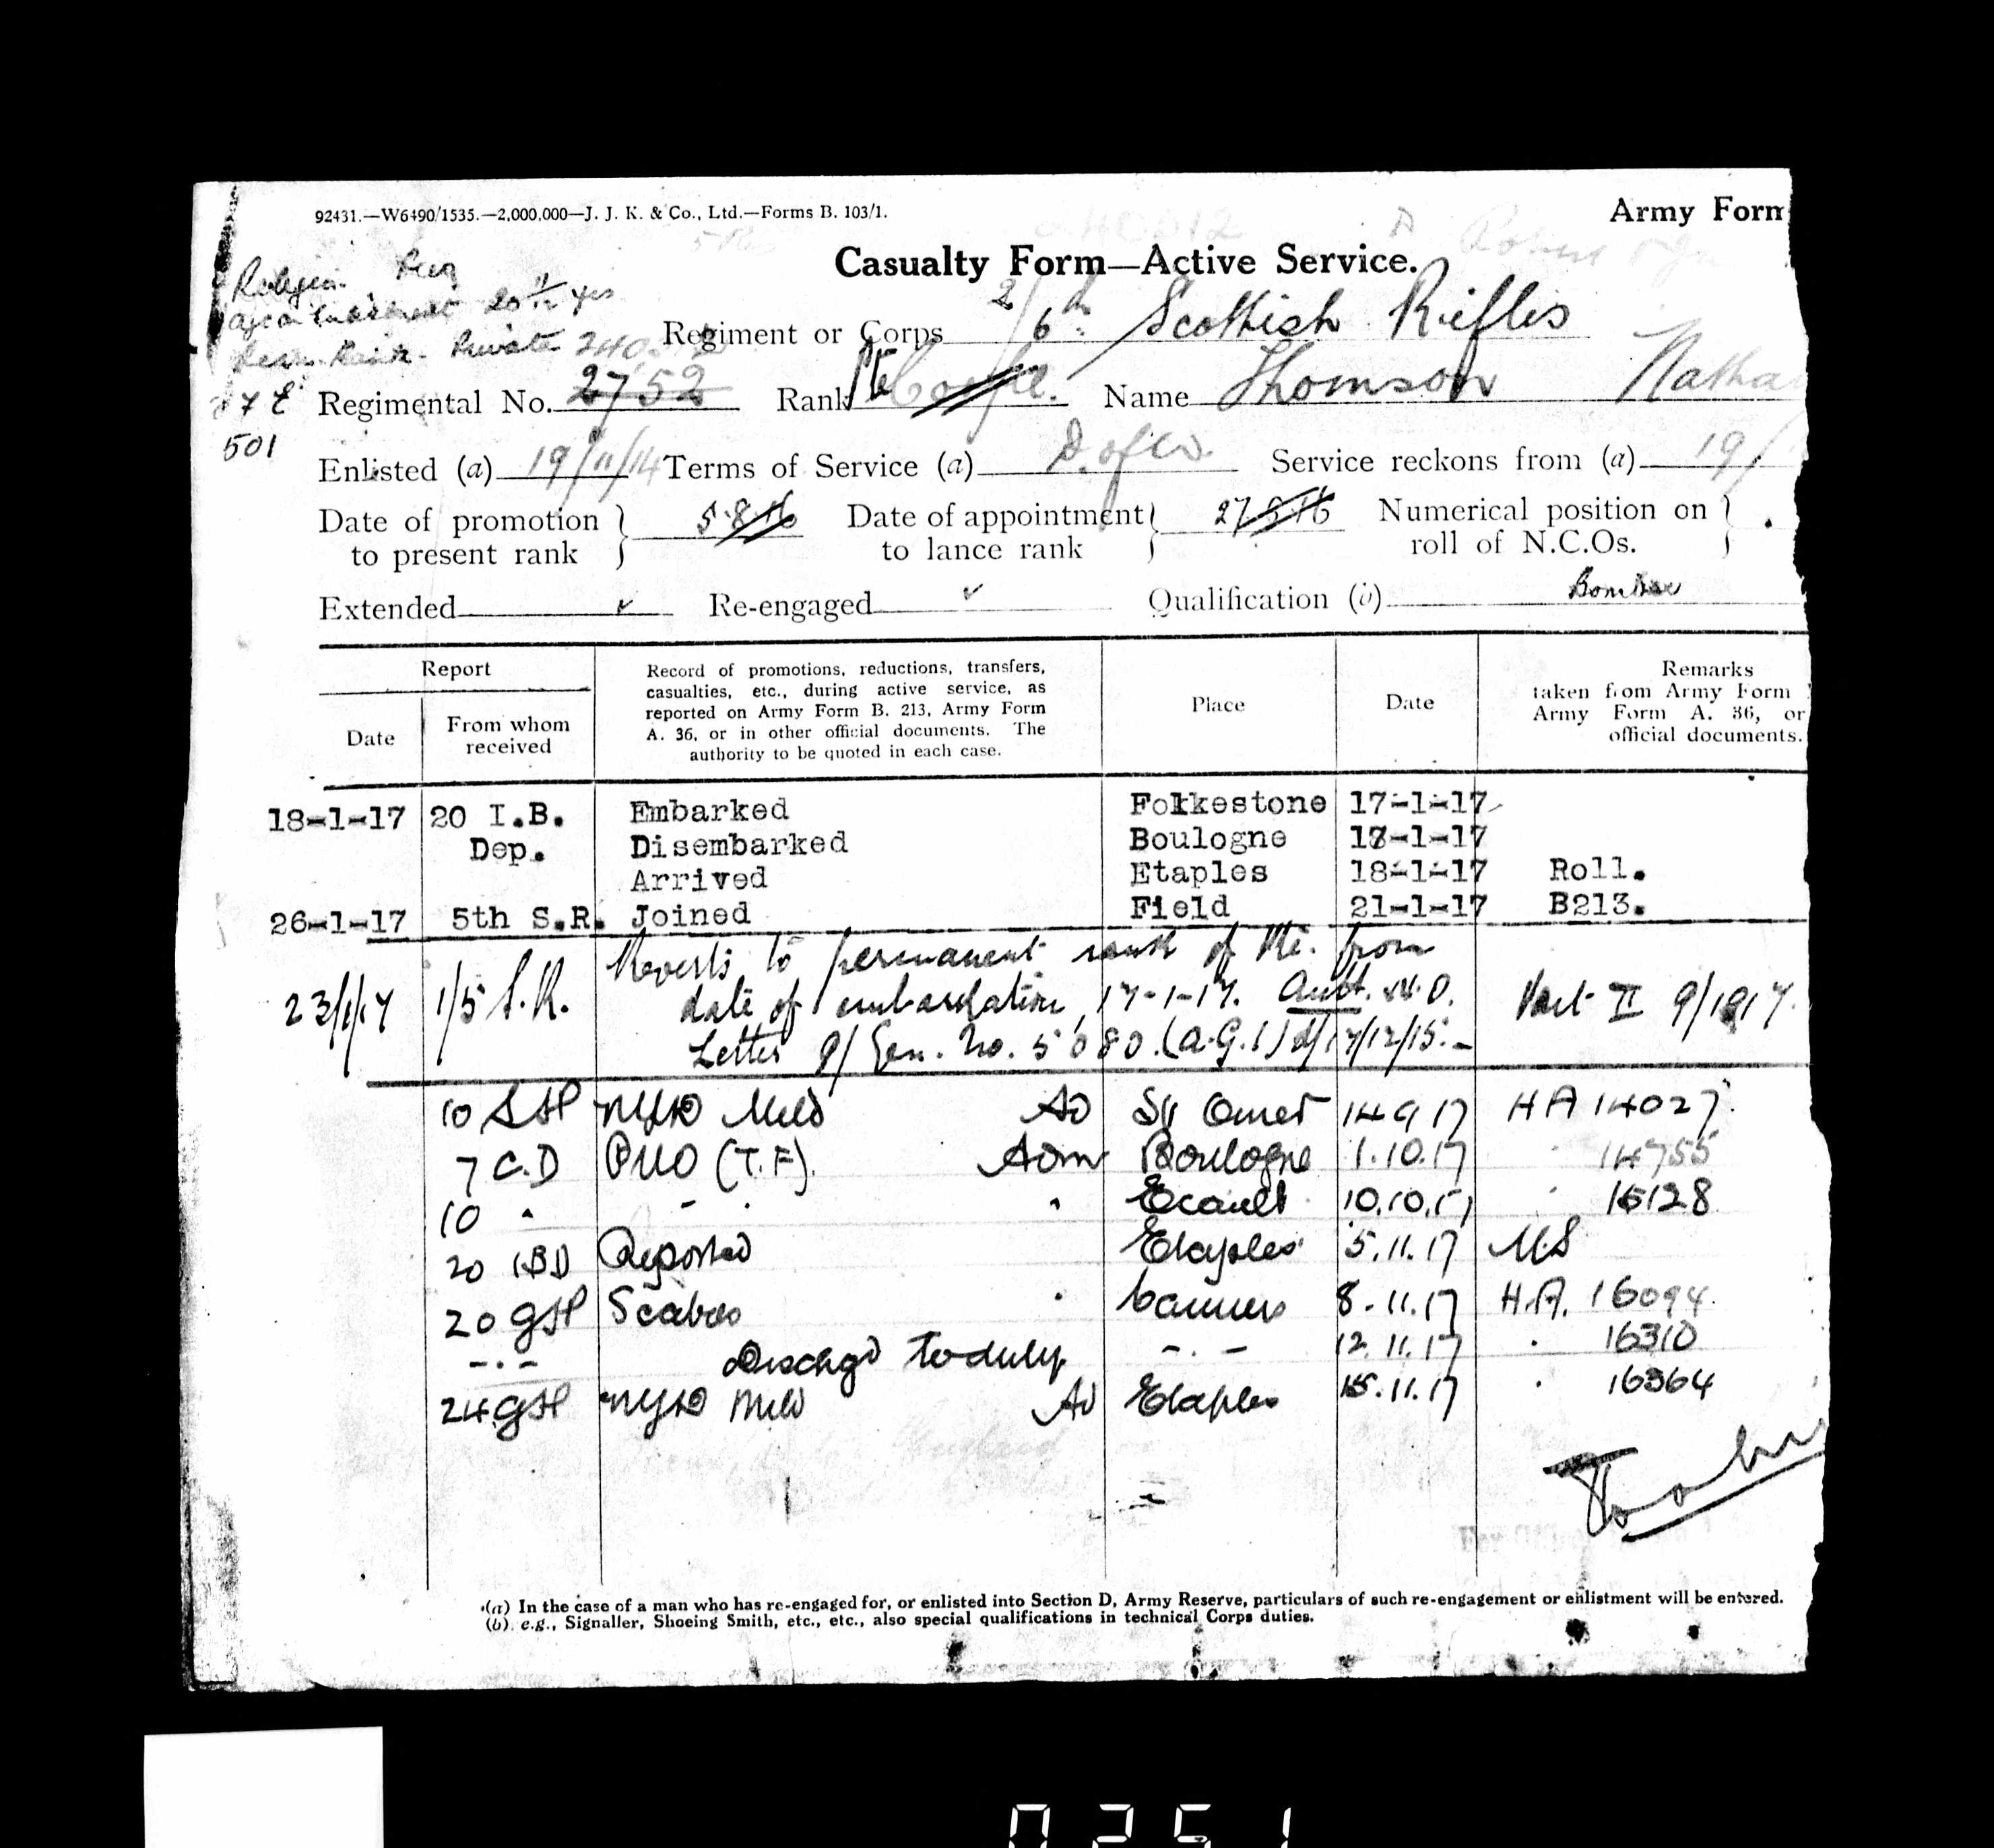 92431.—W6490/1535.—2,000,000—J. J. K. & Co., Ltd.—Forms B. 103/1.
Army Form
Casualty Form—Active Service.
Regiment or Corps 2/6th Scottish Rifles
Private 240
Regimental No. 2752 Rank Pte Name Thomson Natha
501
Enlisted (a) 19/11/14 Terms of Service (a) D. of W. Service reckons from (a) 19/
Date of promotion to present rank } 5.8.16 Date of appointment to lance rank } 27.5.16 Numerical position on roll of N.C.Os. }
Extended ✓ Re-engaged ✓ Qualification (b) Bomber
Report
Date
From whom received
Record of promotions, reductions, transfers,
casualties, etc., during active service, as
reported on Army Form B. 213, Army Form
A. 36, or in other official documents. The
authority to be quoted in each case.
Place
Date
Remarks
taken from Army Form
Army Form A. 36, or
official documents.
18-1-17 20 I.B. Embarked Folkestone 17-1-17
Dep. Disembarked Boulogne 17-1-17
Arrived Etaples 18-1-17 Roll.
26-1-17 5th S.R. Joined Field 21-1-17 B213.
Reverts to permanent rank of Pte. from
23/1/17 1/5 S.R. date of embarkation 17-1-17. Auth. W.O. Part II 9/1917.
Letter 9/Gen. No. 5080. (A.G.1) d/17/12/15.—
10 SH NYD Mild Ad St Omer 14 9 17 HA 14027
7 C.D PUO (T.F). Adm Boulogne 1.10.17 " 14755
10 " - " " Ecault 10.10.17 " 15128
20 IBD Reported Etaples 5.11.17 MS
20 GH Scabies " Camiers 8.11.17 H.A. 16094
-"- Dischgd To duty -"- 12.11.17 " 16310
24 GH NYD Mild Ad Etaples 15.11.17 " 16364
(a) In the case of a man who has re-engaged for, or enlisted into Section D, Army Reserve, particulars of such re-engagement or enlistment will be entered.
(b) e.g., Signaller, Shoeing Smith, etc., etc., also special qualifications in technical Corps duties.
0251